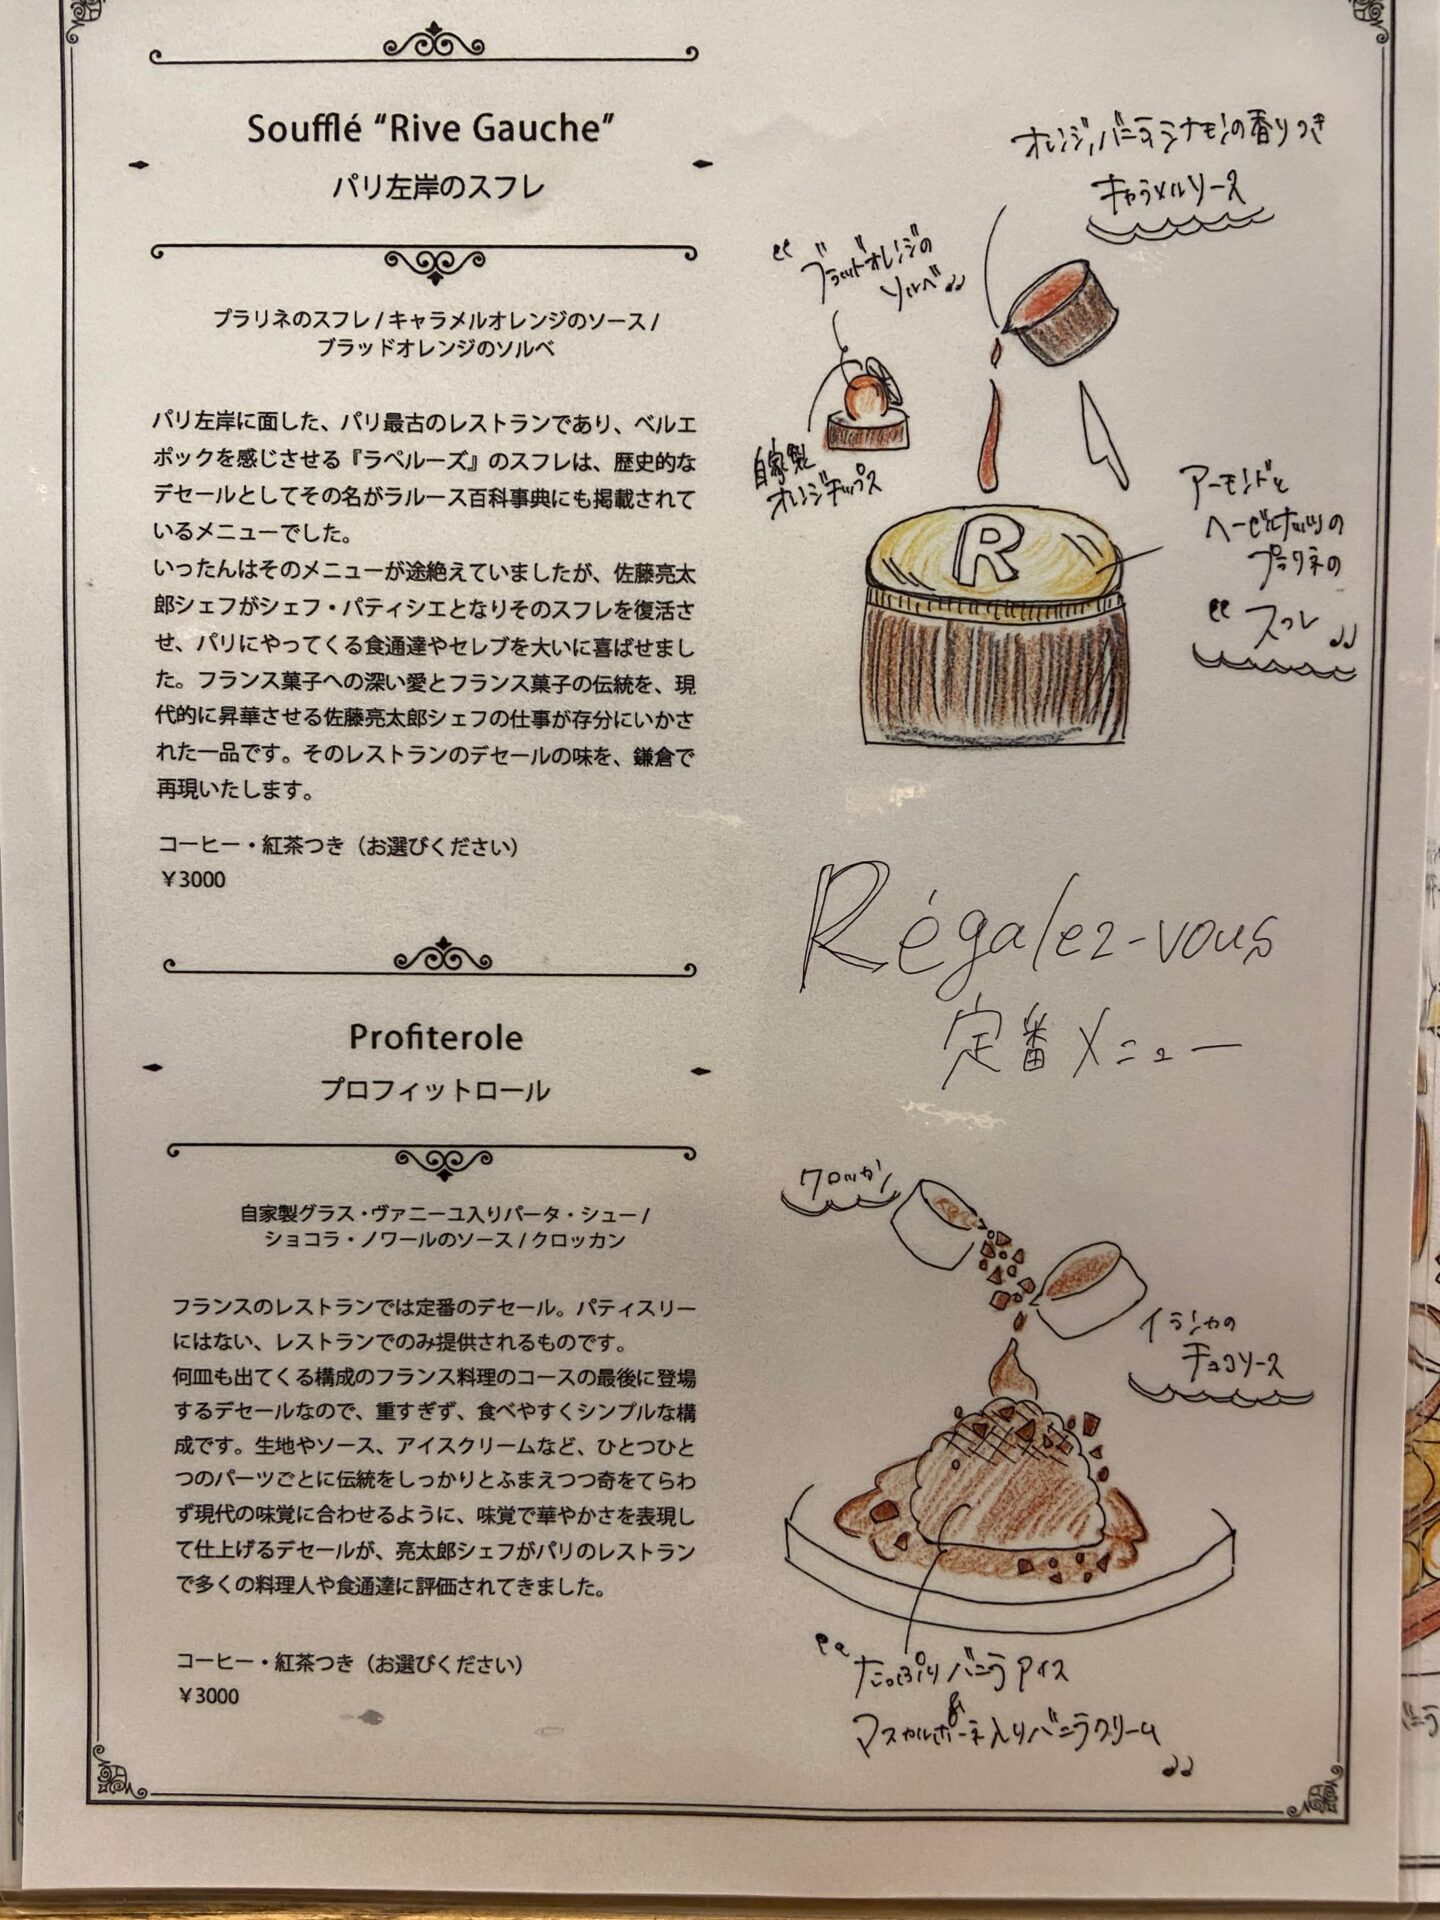 Soufflé “Rive Gauche”
パリ左岸のスフレ
プラリネのスフレ / キャラメルオレンジのソース /
ブラッドオレンジのソルベ
パリ左岸に面した、パリ最古のレストランであり、ベルエ
ポックを感じさせる『ラペルーズ』のスフレは、歴史的な
デセールとしてその名がラルース百科事典にも掲載されて
いるメニューでした。
いったんはそのメニューが途絶えていましたが、佐藤亮太
郎シェフがシェフ・パティシエとなりそのスフレを復活さ
せ、パリにやってくる食通達やセレブを大いに喜ばせまし
た。フランス菓子への深い愛とフランス菓子の伝統を、現
代的に昇華させる佐藤亮太郎シェフの仕事が存分にいかさ
れた一品です。そのレストランのデセールの味を、鎌倉で
再現いたします。
コーヒー・紅茶つき（お選びください）
￥3000
オレンジ,バニラシナモンの香りつき
キャラメルソース
ブラッドオレンジの
ソルベ
自家製
オレンジチップス
R
アーモンドと
ヘーゼルナッツの
プラリネの
スフレ
Régalez-vous
定番メニュー
Profiterole
プロフィットロール
自家製グラス・ヴァニーユ入りパータ・シュー /
ショコラ・ノワールのソース / クロッカン
フランスのレストランでは定番のデセール。パティスリー
にはない、レストランでのみ提供されるものです。
何皿も出てくる構成のフランス料理のコースの最後に登場
するデセールなので、重すぎず、食べやすくシンプルな構
成です。生地やソース、アイスクリームなど、ひとつひと
つのパーツごとに伝統をしっかりとふまえつつ奇をてらわ
ず現代の味覚に合わせるように、味覚で華やかさを表現し
て仕上げるデセールが、亮太郎シェフがパリのレストラン
で多くの料理人や食通達に評価されてきました。
コーヒー・紅茶つき（お選びください）
￥3000
クロッカン
イランカの
チョコソース
たっぷりバニラアイス
&
マスカルポーネ入りバニラクリーム